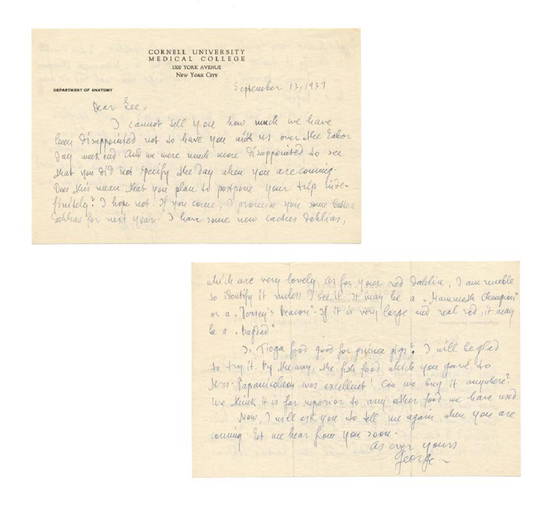 CORNELL UNIVERSITY
MEDICAL COLLEGE
1300 YORK AVENUE
New York City
DEPARTMENT OF ANATOMY
September 13, 1937
Dear Lee,
I cannot tell you how much we have
been disappointed not to have you with us over the Labor
Day week end. And we were much more disappointed to see
that you did not specify the day when you are coming.
Does this mean that you plan to postpone your trip inde-
finitely? I hope not. If you come, I promise you some
dahlias for next year. I have some new cactus dahlias,
which are very lovely. As for your red dahlia, I am unable
to identify it unless I see it. It may be a "Mammoth Champion"
or a "Jersey's Beacon". If it is very large and real red, it may
be a "Bagdad"
Is Tioga food good for guinea pigs? I will be glad
to try it. By the way, the fish food which you gave to
Mrs. Papanicolaou was excellent! Can we buy it anywhere?
We think it is far superior to any other food we have used.
Now, I will ask you to tell me again when you are
coming. Let me hear from you soon.
As ever yours
George